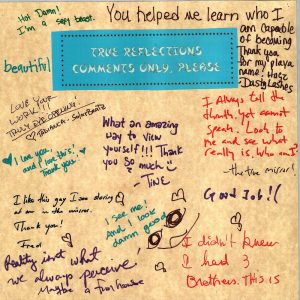 Hot Damn!
I'm a sexy beast.
You helped me learn who I
am capable
of becoming
Thank you
for my playa
name! Hugz
DustyLashes
beautiful
TRUE REFLECTIONS
COMMENTS ONLY, PLEASE
LOVE YOUR
WORK!!!
TRULY EYE OPENING!
I love you
and I love this!
Thank you
What an amazing
way to view
yourself!!! Thank
you so much
- TINE
I Always tell the
thruth, yet cannot
speak. Look to
me and see what
really is, Who am I?
- the true mirror!
Good Job!(
I like this guy I am staring
at me in the mirror.
Thank you!
Fred
I see me!
And I look
damn good
Reality isn't what
we always perceive
Maybe a fun house
I didn't know
I had 3
Brothers. THIS IS